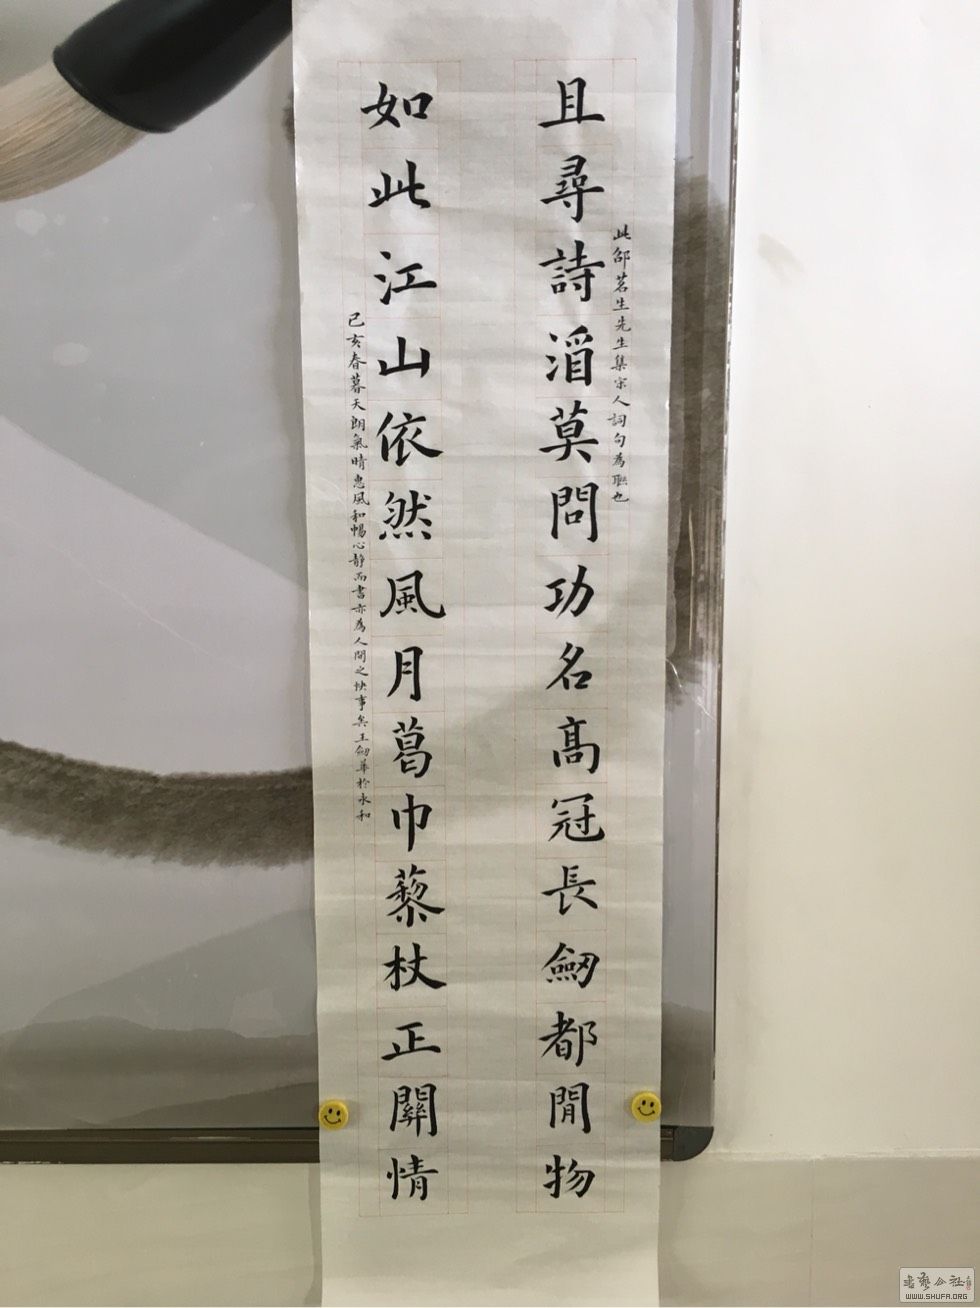 此邵茗生先生集宋人詞句為聯也
且尋詩酒莫問功名髙冠長劒都閒物
如此江山依然風月葛巾藜杖正關情
己亥春暮天朗氣晴惠風和暢心静而書亦為人間之快事矣王劒華於永和
書藝公社
WWW.SHUFA.ORG